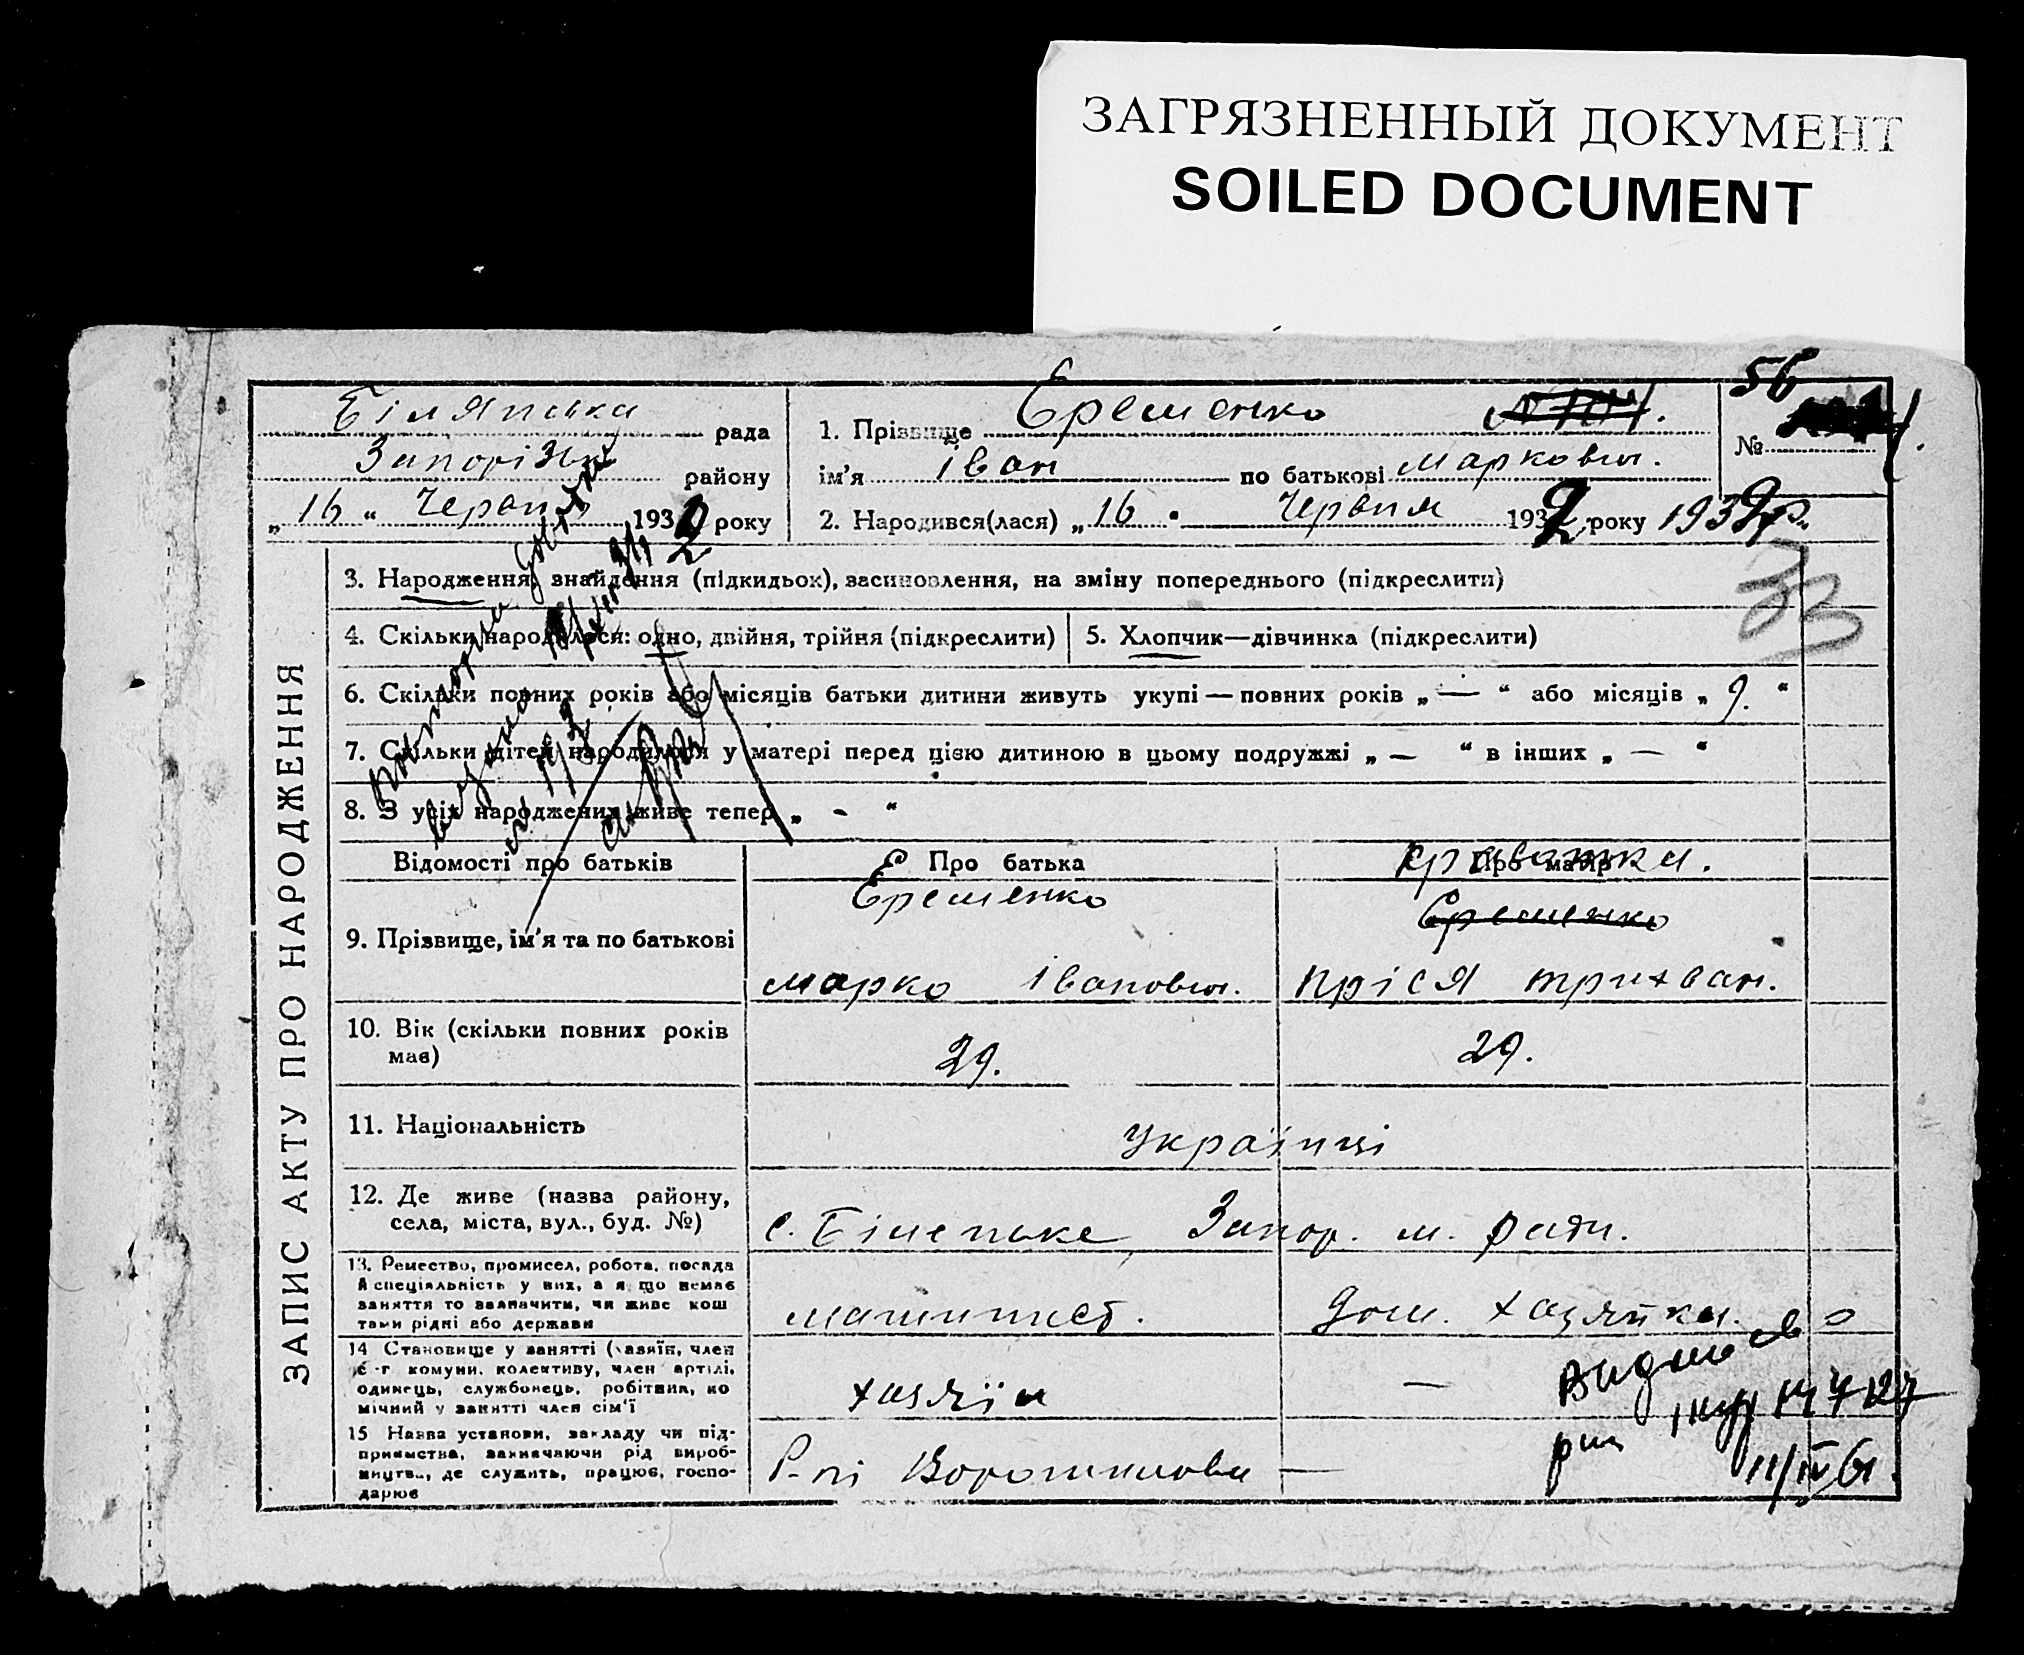 ЗАГРЯЗНЕННЫЙ ДОКУМЕНТ
SOILED DOCUMENT
ЗАПИС АКТУ ПРО НАРОДЖЕННЯ
рада
Запорізьк району
„16“ Червня 1932 року
56
№
1. Прізвище Еременко
ім'я Іван по батькові Маркович.
2. Народився(лася) „16 Червня 1932 року 1932 р.
33
3. Народження, знайдення (підкидьок), засиновлення, на зміну попереднього (підкреслити)
4. Скільки народилося: одно, двійня, трійня (підкреслити)
5. Хлопчик—дівчинка (підкреслити)
6. Скільки повних років або місяців батьки дитини живуть укупі — повних років „ — “ або місяців „ 9. “
7. Скільки дітей народилося у матері перед цією дитиною в цьому подружжі „ — “ в інших „ — “
8. З усіх народжених живе тепер „ - “
повторно
видано
Відомості про батьків
Про батька
Про матір
9. Прізвище, ім'я та по батькові
Еременко
Еременко
Марко Іванович.
Пріся Трихван.
10. Вік (скільки повних років
має)
29.
29.
11. Національність
Українці
12. Де живе (назва району,
села, міста, вул., буд. №)
с. Біленьке Запор. м. ради.
13. Ремество, промисел, робота, посада
й спеціяльність у них, а якщо немає
заняття то зазначити, чи живе кош
тами рідні або держави
машинист.
дом. хазяйка.
14 Становище у занятті (хазяїн, член
с.-г комуни, колективу, член артілі,
одинець, службовець, робітник, по
мічний у занятті член сім'ї
хазяїн
—
15 Назва установи, закладу чи під-
приємства, зазначаючи рід вироб-
ництва, де служить, працює, госпо-
дарює
Р-пі Ворошилова —
11/IV 61.